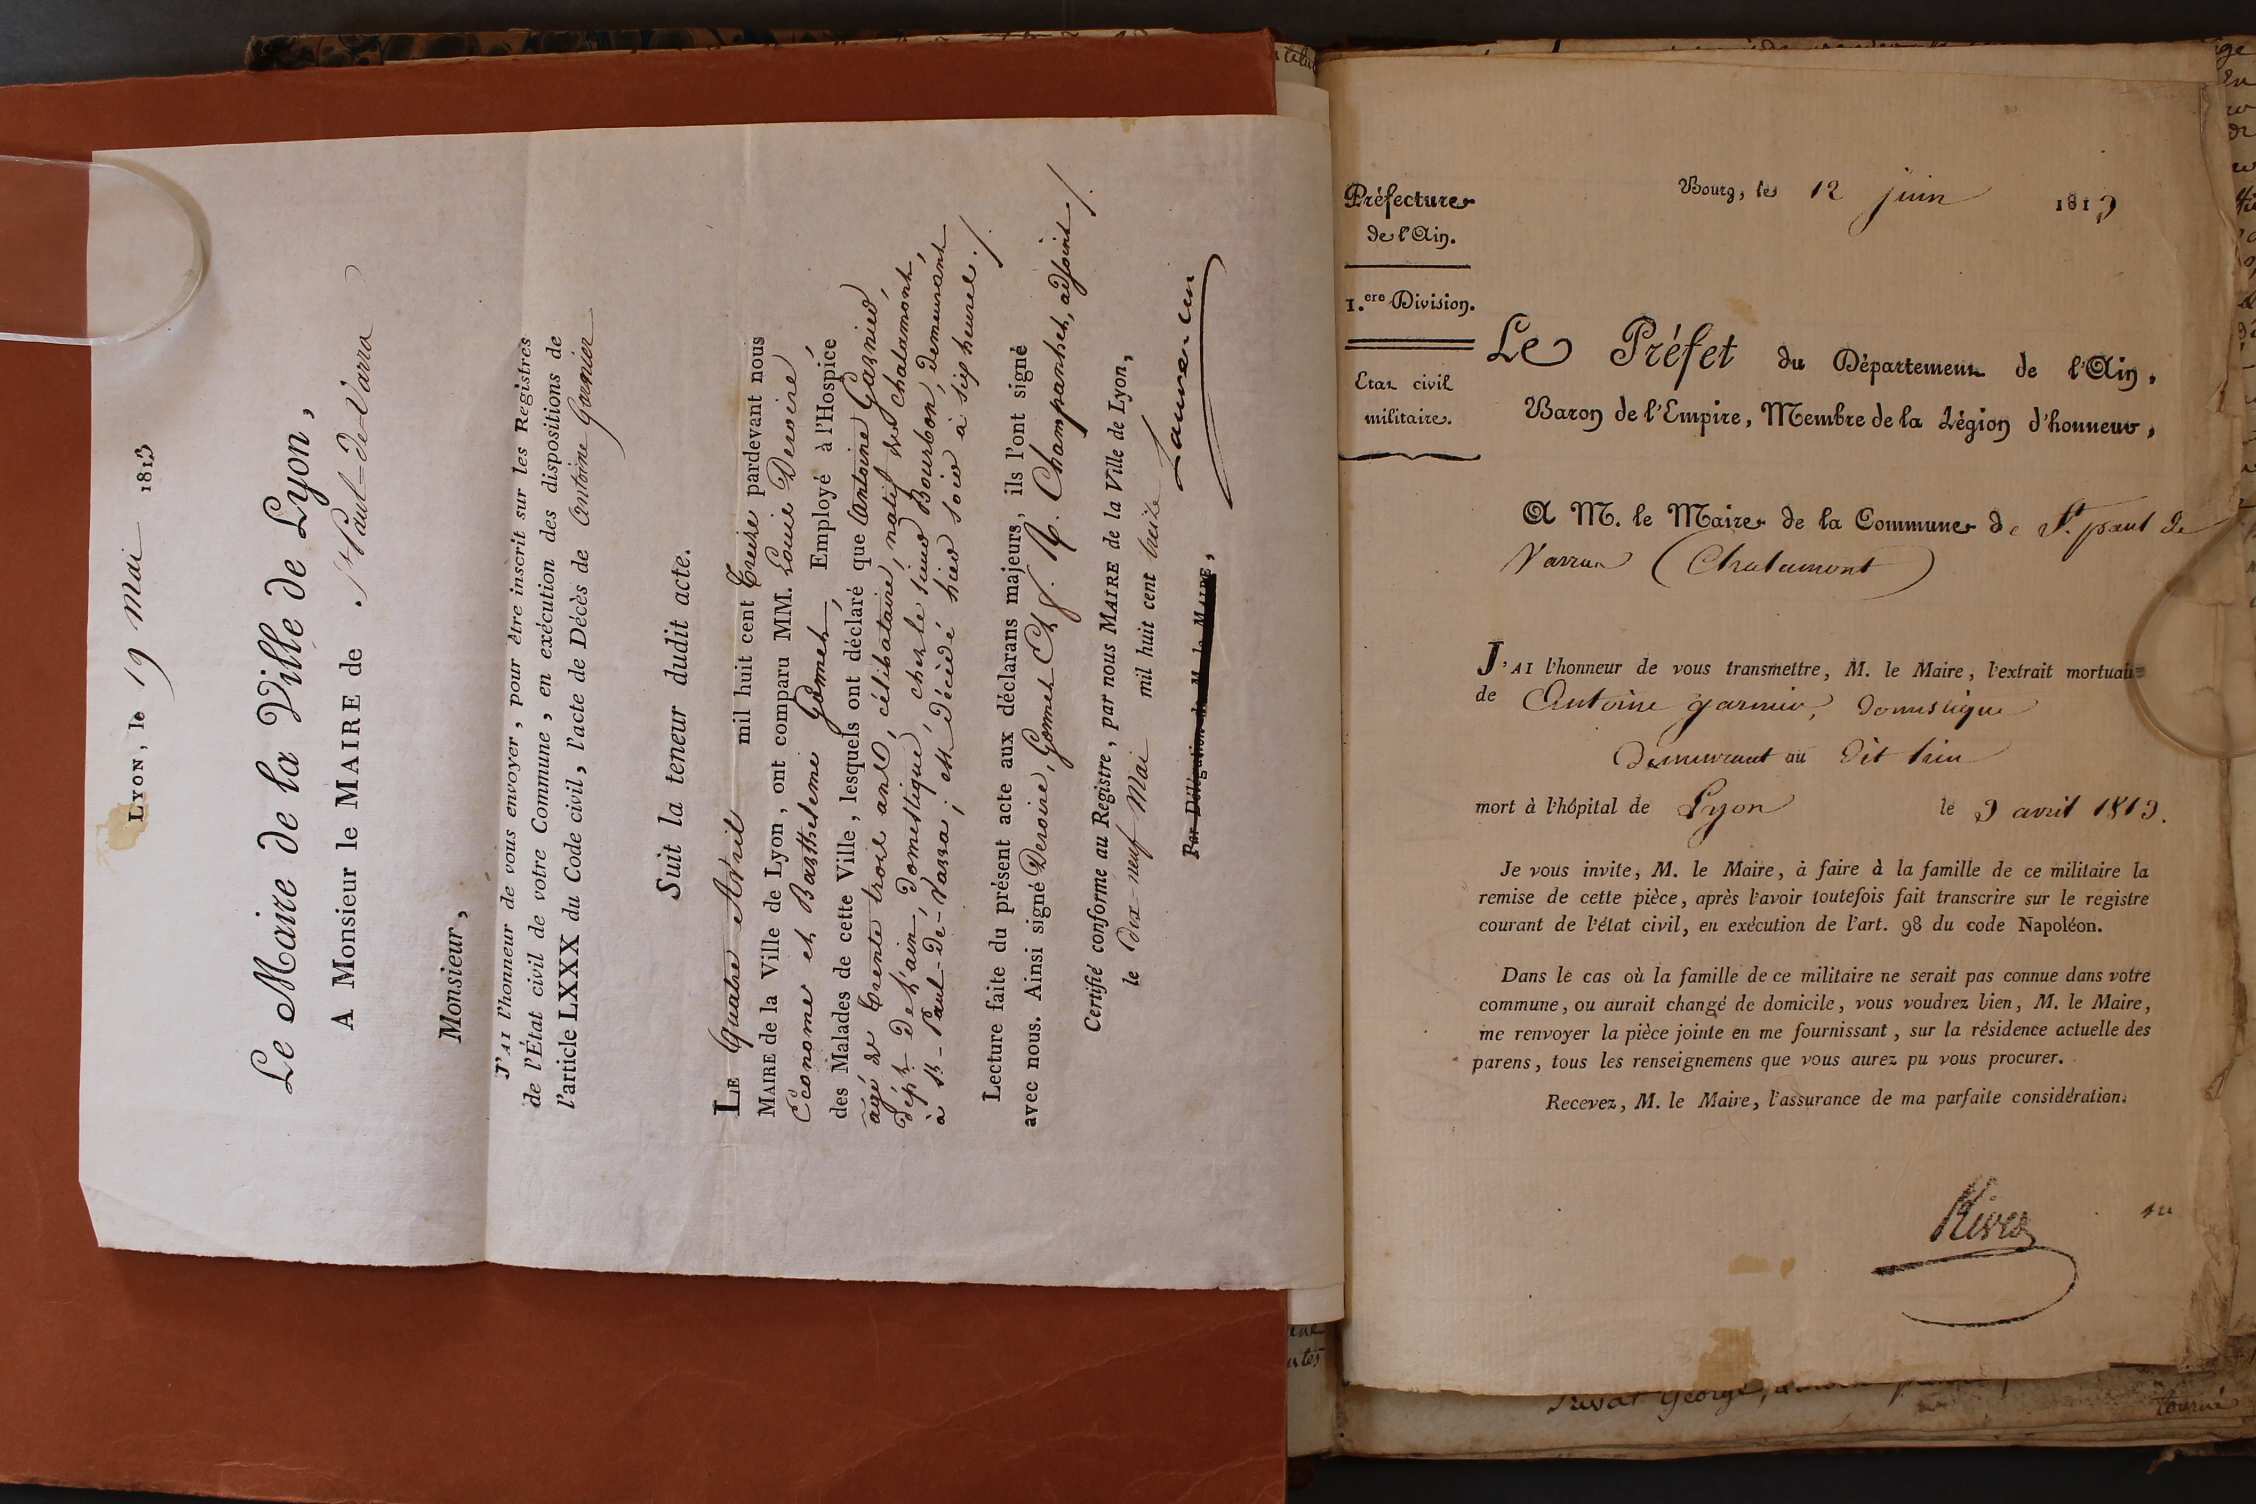 LYON, le 19 Mai 1813
Le Maire de la Ville de Lyon,
A Monsieur le MAIRE de St Paul-de-Varra
Monsieur,
J'AI l'honneur de vous envoyer, pour être inscrit sur les Registres
de l'État civil de votre Commune, en exécution des dispositions de
l'article LXXX du Code civil, l'acte de Décès de Antoine Garnier
Suit la teneur dudit acte.
LE Quatre Avril mil huit cent Treize pardevant nous
MAIRE de la Ville de Lyon, ont comparu MM. Louis Deroire
Econome et Barthelemi Gomet, Employé à l'Hospice
des Malades de cette Ville, lesquels ont déclaré que Antoine Garnier
agé de trente trois ans, célibataire, natif de Chalamont,
dépt de l'ain, domestique, chez le sieur Bourbon, demeurant
à St-Paul-de-Varra; est décédé hier soir à six heures./.
Lecture faite du présent acte aux déclarans majeurs, ils l'ont signé
avec nous. Ainsi signé Deroire, Gomet Ch. Champanhet, adjoint./.
Certifié conforme au Registre, par nous MAIRE de la Ville de Lyon,
le dix-neuf Mai mil huit cent treize
Par Délégation de M. le MAIRE,
Préfecture
de l'Ain.
1.ere Division.
Etat civil
militaire.
Bourg, le 12 juin 1813
Le Préfet du Département de l'Ain,
Baron de l'Empire, Membre de la Légion d'honneur,
A M. le Maire de la Commune de St. paul de
Varrax (Chalamont)
J'AI l'honneur de vous transmettre, M. le Maire, l'extrait mortuaire
de Antoine garnier, domestique
demeurant au dit lieu
mort à l'hôpital de Lyon le 3 avril 1813.
Je vous invite, M. le Maire, à faire à la famille de ce militaire la
remise de cette pièce, après l'avoir toutefois fait transcrire sur le registre
courant de l'état civil, en exécution de l'art. 98 du code Napoléon.
Dans le cas où la famille de ce militaire ne serait pas connue dans votre
commune, ou aurait changé de domicile, vous voudrez bien, M. le Maire,
me renvoyer la pièce jointe en me fournissant, sur la résidence actuelle des
parens, tous les renseignemens que vous aurez pu vous procurer.
Recevez, M. le Maire, l'assurance de ma parfaite considération.
Rivet